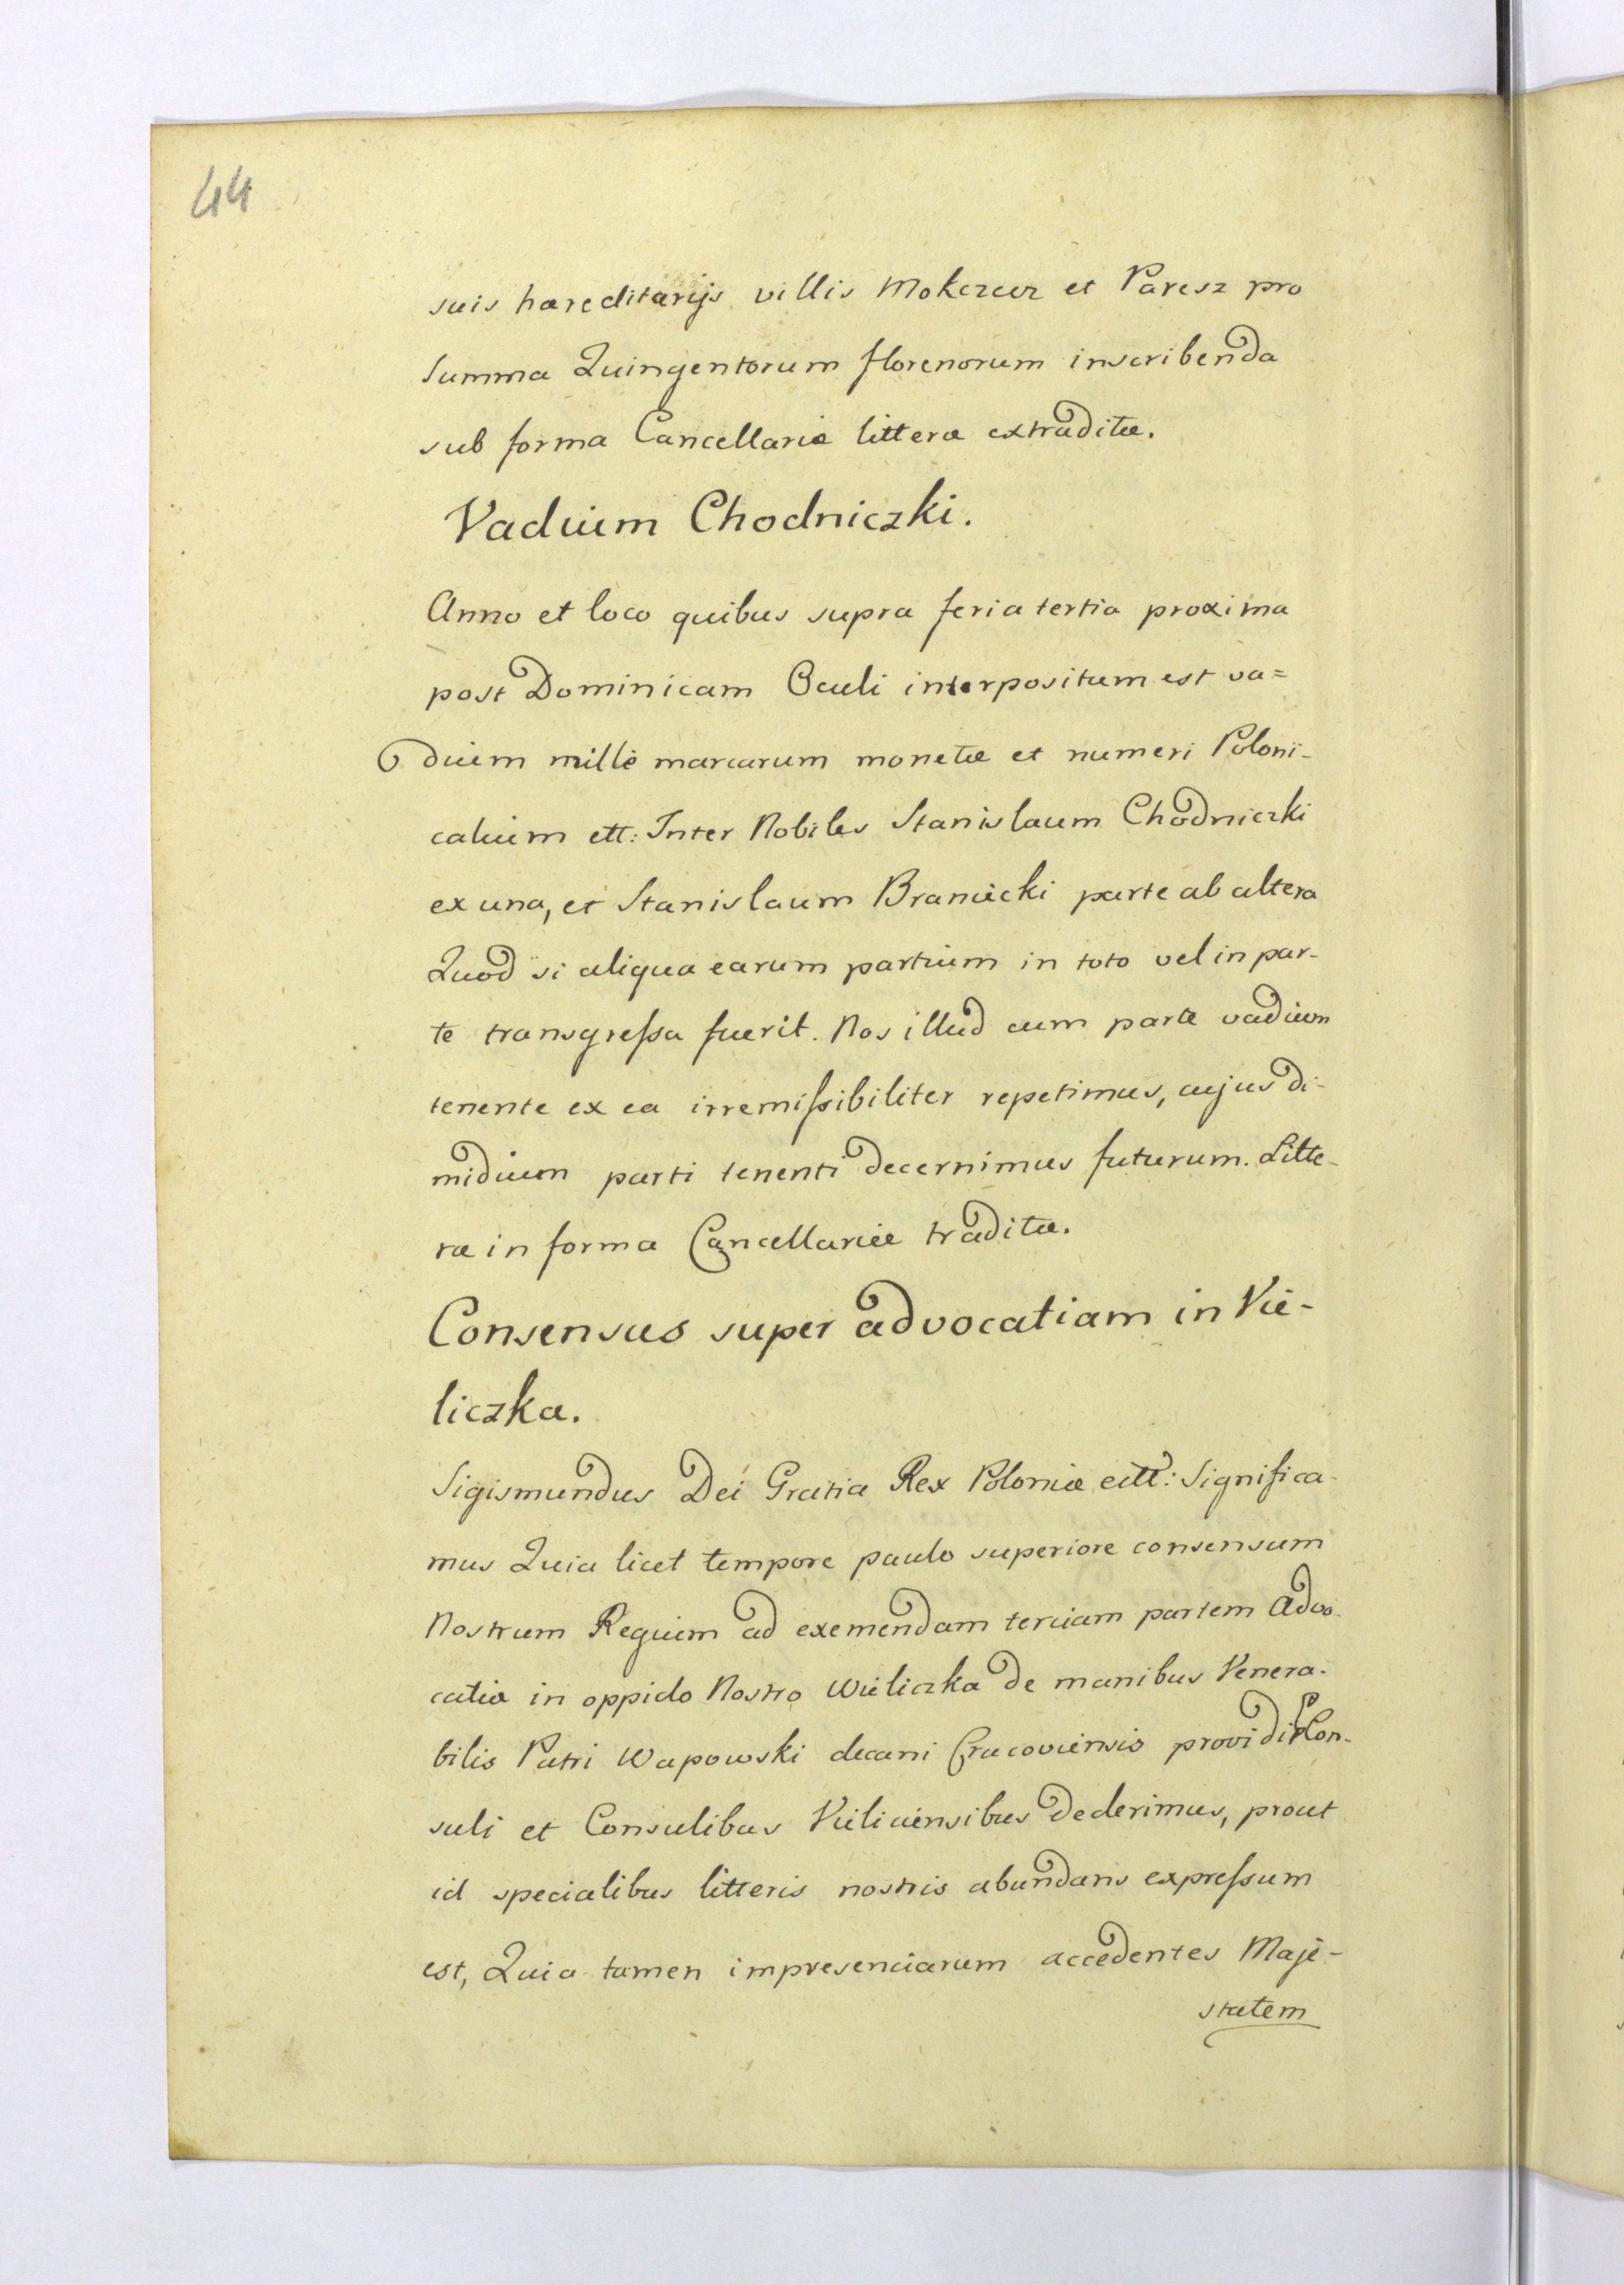 44
suis hæreditarijs villis Mokrzer et Paresz pro
summa Quingentorum florenorum inscribenda
sub forma Cancellariæ litteræ extraditæ.
Vadium Chodniczki.
Anno et loco quibus supra feria tertia proxima
post Dominicam Oculi interpositum est va=
dium mille marcarum monetæ et numeri Poloni-
calium ett: Inter Nobiles Stanislaum Chodniczki
ex una, et Stanislaum Braniicki parte ab altera
Quod si aliqua earum partium in toto vel in par-
te transgreſsa fuerit. Nos illud cum parte vadium
tenente ex ea irremiſsibiliter repetimus, cujus di-
midium parti tenenti decernimus futurum. Litte-
ræ in forma Cancellariæ traditæ.
Consensus super advocatiam in Vie-
liczka.
Sigismundus Dei Gratia Rex Poloniæ ett: Significa-
mus Quia licet tempore paulo superiore consensum
Nostrum Regium ad exemendam terciam partem Advo-
catiæ in oppido Nostro Wieliczka de manibus Venera-
bilis Patri Wapowski decani Cracoviensis providis Con-
suli et Consulibus Vieliciensibus dederimus, prout
id specialibus litteris nostris abundans expreſsum
est, Quia tamen impresenciarum accedentes Maje-
statem